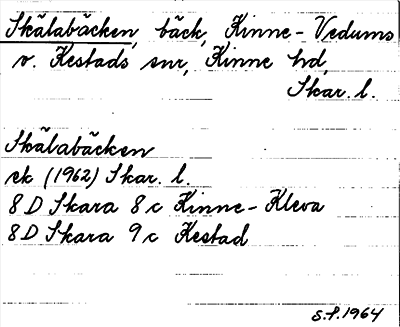 Skälabäcken, bäck, Kinne-Vedums
o. Kestads snr, Kinne hd,
Skar. l.
Skälabäcken
ek (1962) Skar. l.
8 D Skara 8 c Kinne-Kleva
8 D Skara 9 c Kestad
S.F. 1964